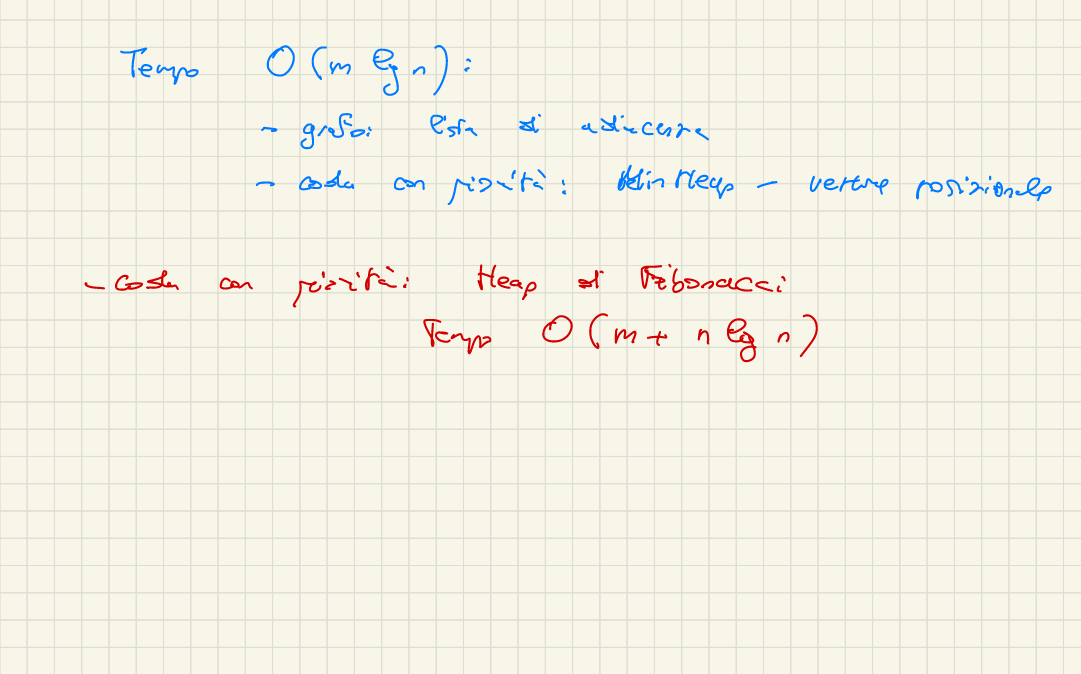 Tempo O(m lg n):
- grafo: lista di adiacenza
- coda con priorità: Min Heap - vettore posizionale
- coda con priorità: Heap di Fibonacci
Tempo O(m + n lg n)